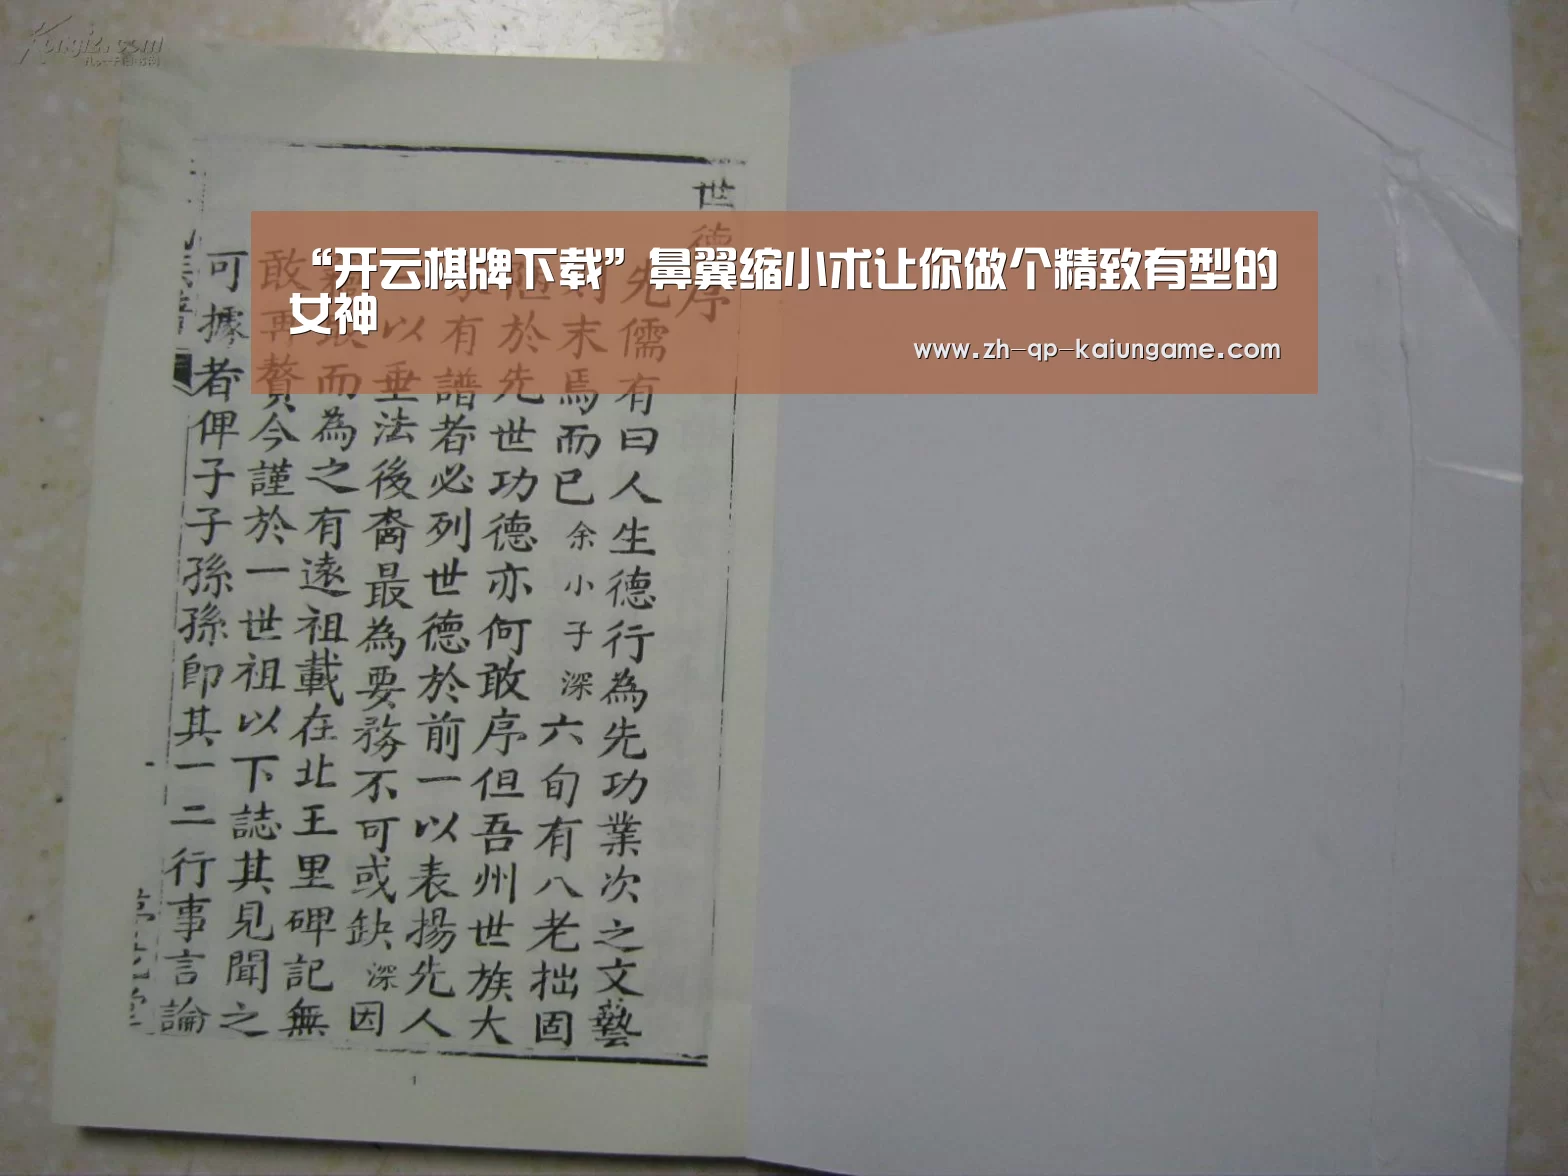 Kongfz.com
“开云棋牌下载”鼻翼缩小术让你做个精致有型的
女神
www.zh-qp-kaiungame.com
世德序
先儒有曰人生德行為先功業次之文藝
則末焉而已余小子深六旬有八老拙固
於先世功德亦何敢序但吾州世族大
家有譜者必列世德於前一以表揚先人
以垂法後裔最為要務不可或缺深因
而為之有遠祖載在北王里碑記無
敢再贅今謹於一世祖以下誌其見聞之
可據者俾子子孫孫即其一二行事言論
1